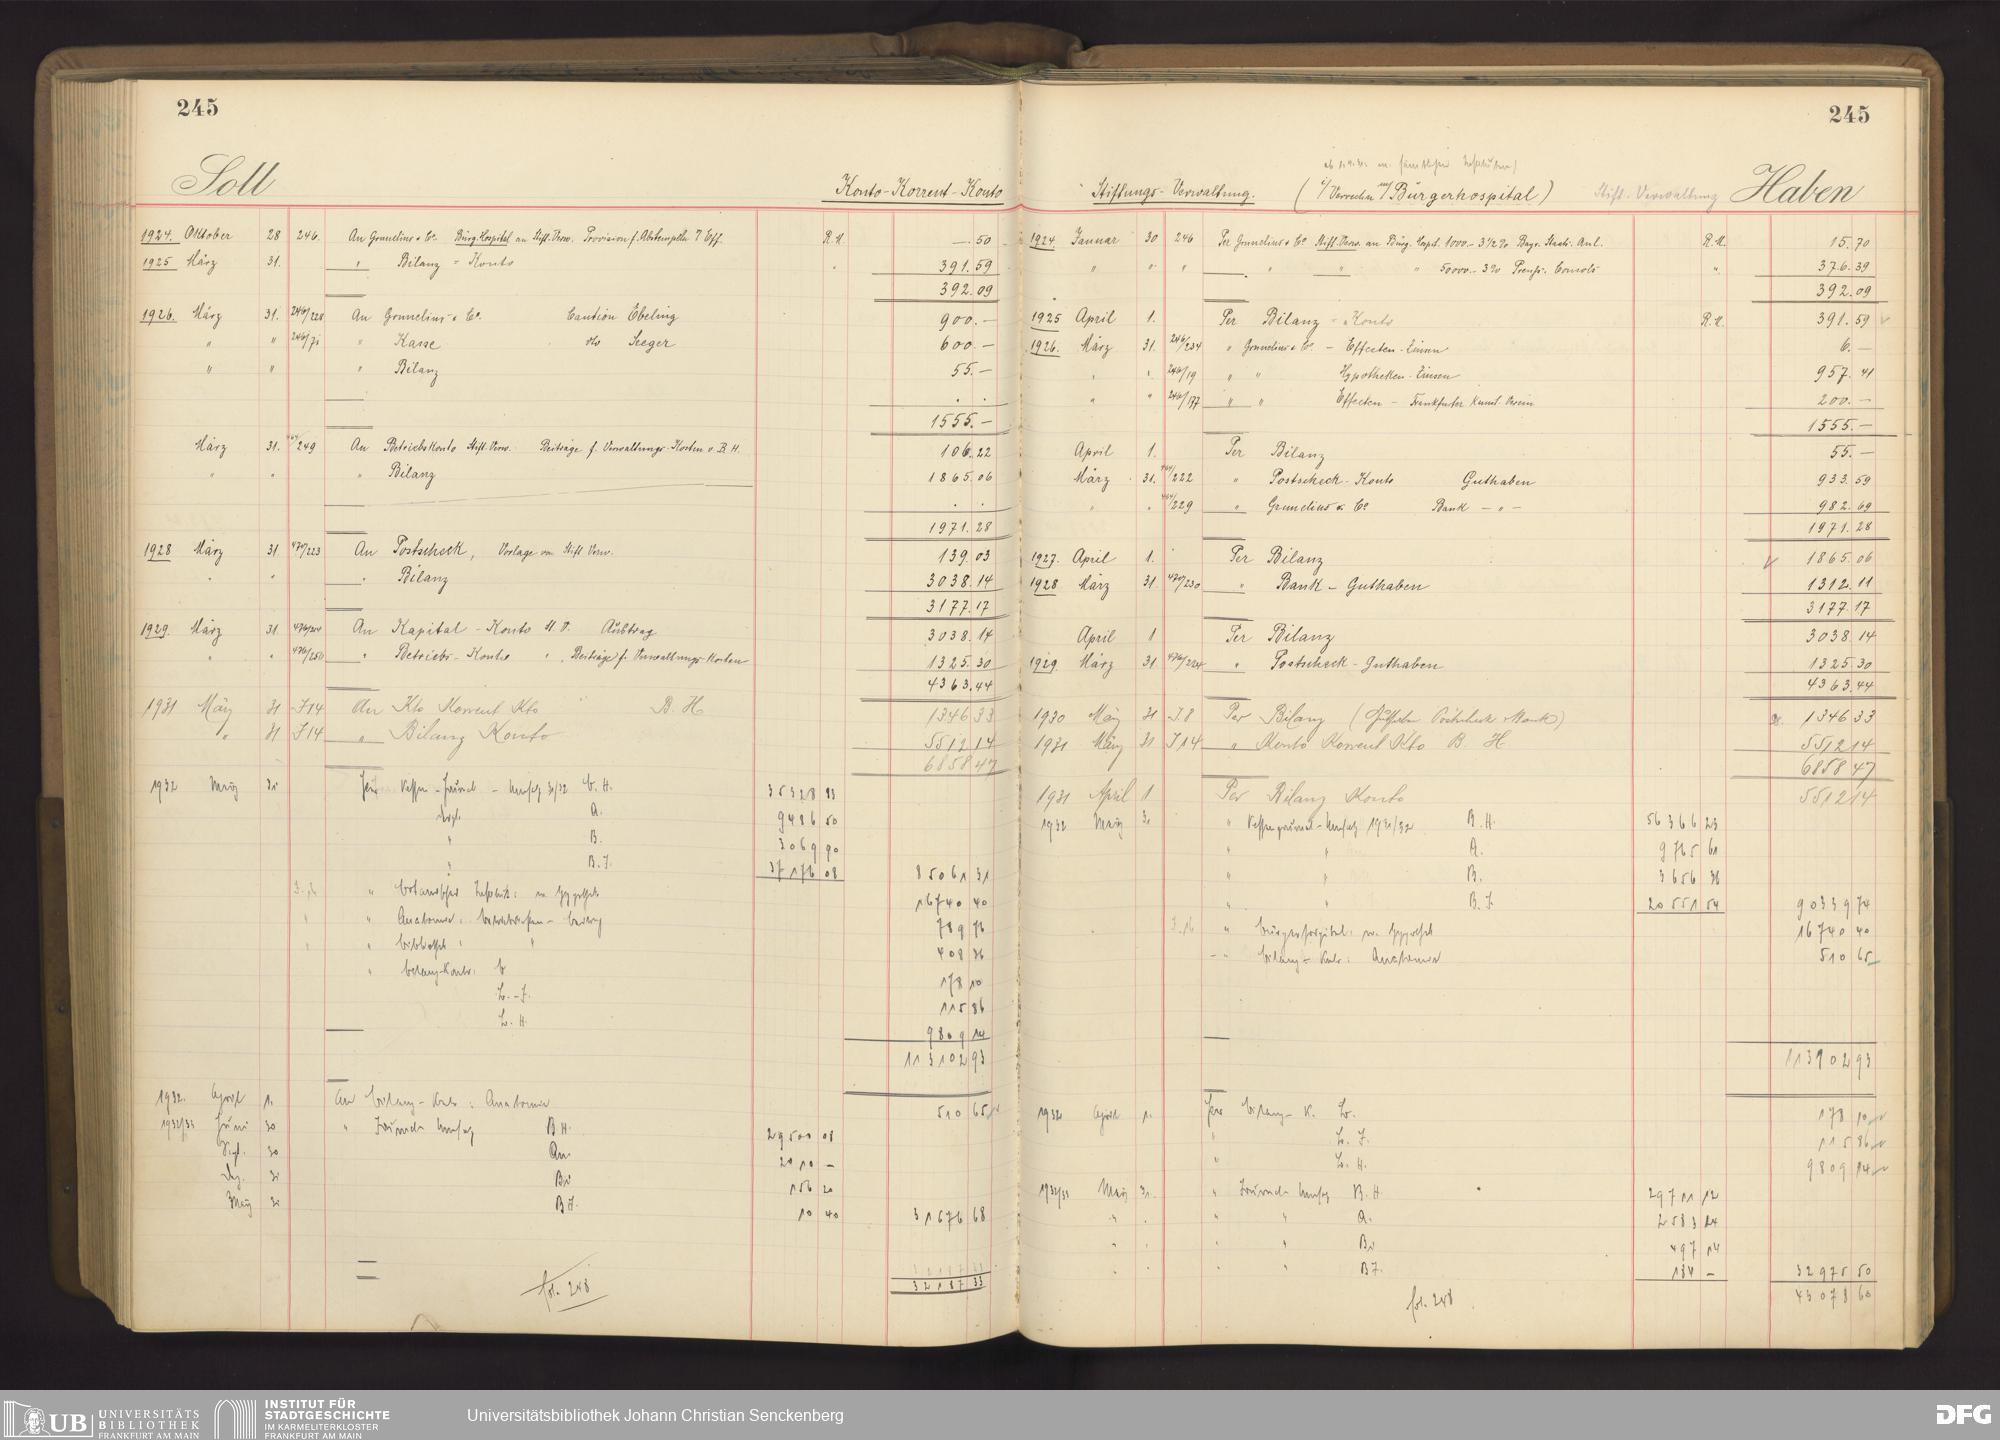 245
Soll
Konto-Korrent-Konto
1924. Oktober 28 246. An Grunelius & Co. Bürg. Hospital an Stift. Verw. Provision f. Abstempeln Eff. R.M. —.50
1925 März 31. " Bilanz = Konto 391.59
392.09
1926. März 31. 246/228 An Grunelius & Co. Caution Ebeling 900.—
" " 246/71 " Kasse dto Seeger 600.—
" " " Bilanz 55.—
1555.—
März 31. 249 An Betriebskonto Stift. Verw. Beiträge f. Verwaltungs-Kosten v. B. H. 106.22
" " " Bilanz 1865.06
1971.28
1928 März 31 470/223 An Postscheck, Vorlage von Stift. Verw. 139.03
" " " Bilanz 3038.14
3177.17
1929. März 31. An Kapital-Konto 3038.14
" " 476/250 " Betriebs-Konto " Beiträge f. Verwaltungs-Kosten 1325.30
4363.44
1931 März 31 J14 An Kto Korrent Kto B. H 1346 33
" 31 J14 " Bilanz Konto 5512 14
6858 47
1932 März 31 31/32 B. H. 35328 83
A. 9486 50
" B. 3069 90
" B. J. 37176 08 85061 31
" 16740 40
" Anatomie: 789 76
" Bibliothek " " 408 36
" Bilanz-Konto: B 178 10
S.-J. 115 86
S. H. 9809 14
113102 93
1932. April 1. An Bilanz-Konto: Anatomie 510 65
1932/33 Juni 30 " B H. 29500 08
Sept. 30 An 2010 —
Dez. 31 Bi 156 20
März 31 BJ. 10 40 31676 68
32187 33
fol. 248
245
Stiftungs-Verwaltung. (i/Verrechn m/Bürgerhospital) Stift. Verwaltung
Haben
1924. Januar 30 246 Per Grunelius & Co Stift. Verw. an Bürg. Hospit. 1000.- 3½% Bayr. Staats-Anl. R.M. 15.70
" " " " " " 50000.- 3% Preuß. Consols " 376.39
392.09
1925 April 1. Per Bilanz-Konto R.M. 391.59
1926. März 31. 246/234 " Grunelius & Co. — Effecten-Zinsen 6.—
" " 246/19 " " Hypotheken-Zinsen 957.41
" " 246/177 " " Effecten — Frankfurter Kunst-Verein 200.—
1555.—
April 1. Per Bilanz 55.—
März 31. 222 " Postscheck-Konto Guthaben 933.59
" " 229 " Grunelius & Co Bank — " — 982.69
1971.28
1927. April 1. Per Bilanz 1865.06
1928 März 31. 470/230 " Bank-Guthaben 1312.11
3177.17
April 1 Per Bilanz 3038.14
1929. März 31. 476/224 " Postscheck-Guthaben 1325.30
4363.44
1930 März 31 J8 Per Bilanz (Guthaben Postscheck Bank) 1346 33
1931 März 31 J14 " Konto Korrent Kto B. H 5512 14
6858 47
1931 April 1 Per Bilanz Konto 5512 14
1932 März 31 " 1931/32 B. H. 56366 23
" " A. 9765 61
" " B. 3656 36
" " B. J. 20551 54 90339 74
J. 16 " Bürgerhospital: 16740 40
" Bilanz-Konto: Anatomie 510 65
113902 93
1932 April 1. Per Bilanz-K. S. 178 10
" S. J. 115 86
" S. H. 9809 14
1932/33 März 31. " B. H. 29711 12
" " " " A. 2583 24
" " " " Bi 497 14
" " " " BJ. 184 — 32975 50
43078 60
fol. 248
UB UNIVERSITÄTS
BIBLIOTHEK
FRANKFURT AM MAIN
INSTITUT FÜR
STADTGESCHICHTE
IM KARMELITERKLOSTER
FRANKFURT AM MAIN
Universitätsbibliothek Johann Christian Senckenberg
DFG